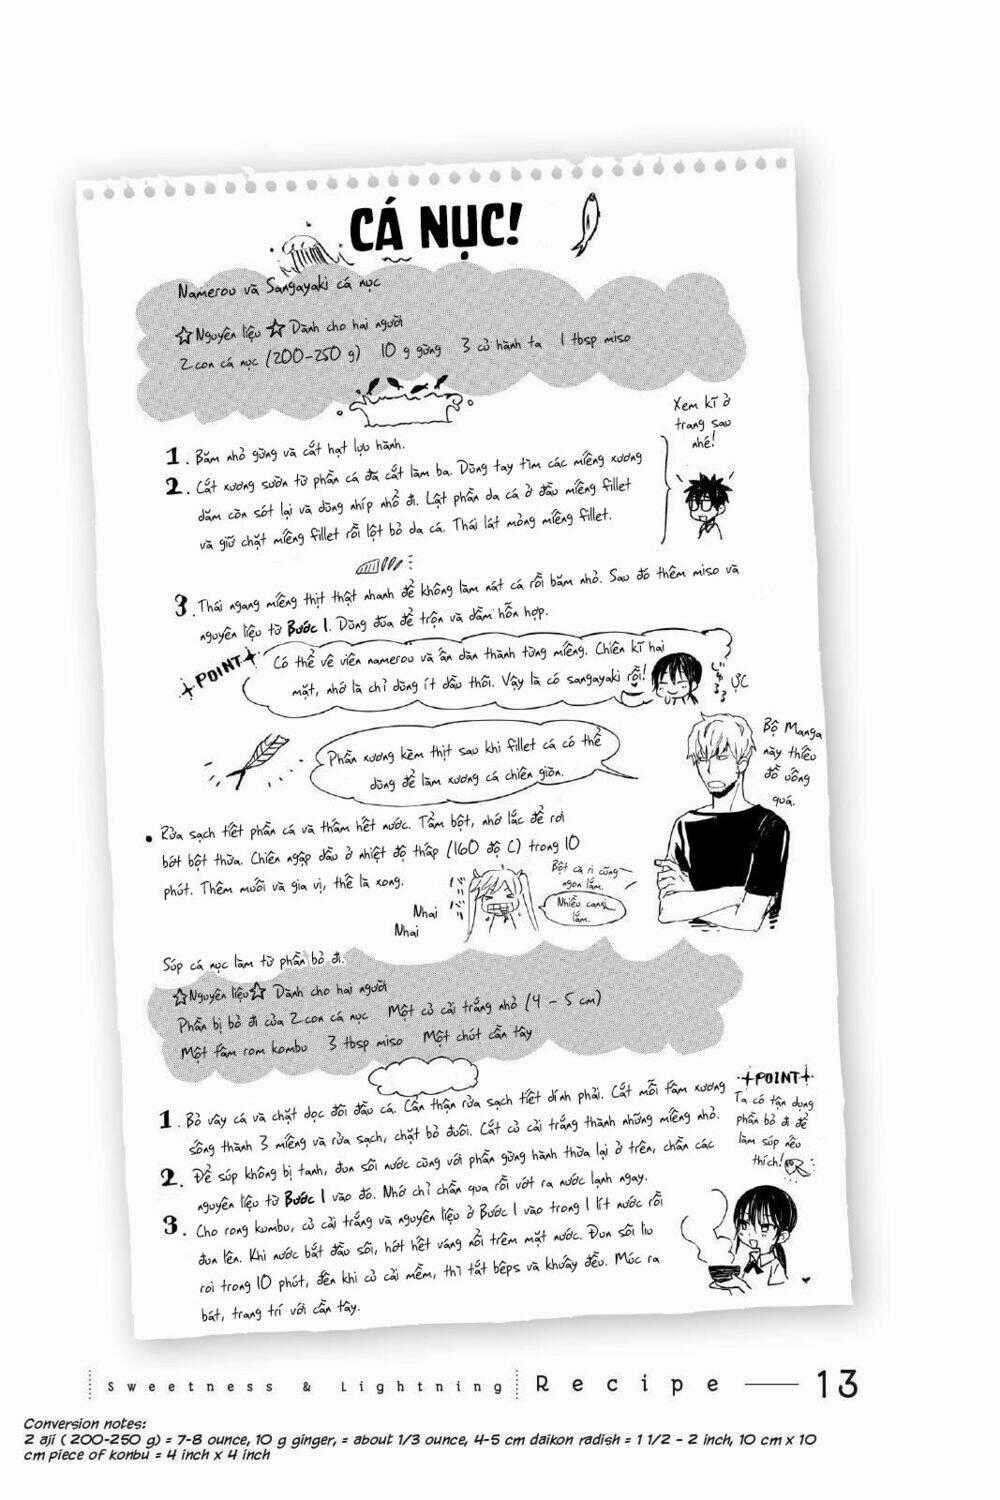 CÁ NỤC!
Namerou và Sangayaki cá nục
☆Nguyên liệu ☆ Dành cho hai người
2 con cá nục (200-250 g) 10 g gừng 3 củ hành ta 1 tbsp miso
Xem kĩ ở
trang sau
nhé!
1. Băm nhỏ gừng và cắt hạt lựu hành.
2. Cắt xương sườn từ phần cá đã cắt làm ba. Dùng tay tìm các miếng xương
dăm còn sót lại và dùng nhíp nhổ đi. Lật phần da cá ở đầu miếng fillet
và giữ chặt miếng fillet rồi lột bỏ da cá. Thái lát mỏng miếng fillet.
3. Thái ngang miếng thịt thật nhanh để không làm nát cá rồi băm nhỏ. Sau đó thêm miso và
nguyên liệu từ Bước 1. Dùng đũa để trộn và dầm hỗn hợp.
POINT
Có thể vê viên namerou và ấn dàn thành từng miếng. Chiên kĩ hai
mặt, nhớ là chỉ dùng ít dầu thôi. Vậy là có sangayaki rồi!
ỰC
Phần xương kèm thịt sau khi fillet cá có thể
dùng để làm xương cá chiên giòn.
Bộ Manga
này thiếu
đồ uống
quá.
• Rửa sạch tiết phần cá và thấm hết nước. Tẩm bột, nhớ lắc để rơi
bớt bột thừa. Chiên ngập dầu ở nhiệt độ thấp (160 độ C) trong 10
phút. Thêm muối và gia vị, thế là xong.
Bột cà ri cũng
ngon lắm.
Nhiều canxi
lắm.
Nhai
Nhai
Súp cá nục làm từ phần bỏ đi.
☆Nguyên liệu☆ Dành cho hai người
Phần bị bỏ đi của 2 con cá nục Một củ cải trắng nhỏ (4 - 5 cm)
Một tấm rom kombu 3 tbsp miso Một chút cần tây
1. Bỏ vây cá và chặt dọc đôi đầu cá. Cẩn thận rửa sạch tiết dính phải. Cắt mỗi tấm xương
sống thành 3 miếng và rửa sạch, chặt bỏ đuôi. Cắt củ cải trắng thành những miếng nhỏ.
2. Để súp không bị tanh, đun sôi nước cùng với phần gừng hành thừa lại ở trên, chần các
nguyên liệu từ Bước 1 vào đó. Nhớ chỉ chần qua rồi vớt ra nước lạnh ngay.
3. Cho rong kombu, củ cải trắng và nguyên liệu ở Bước 1 vào trong 1 lít nước rồi
đun lên. Khi nước bắt đầu sôi, hớt hết váng nổi trêm mặt nước. Đun sôi liu
roi trong 10 phút, đến khi củ cải mềm, thì tắt bếps và khuấy đều. Múc ra
bát, trang trí với cần tây.
POINT
Ta có tận dụng
phần bỏ đi để
làm súp nếu
thích!
Sweetness & Lightning Recipe 13
Conversion notes:
2 aji ( 200-250 g) = 7-8 ounce, 10 g ginger, = about 1/3 ounce, 4-5 cm daikon radish = 1 1/2 - 2 inch, 10 cm x 10
cm piece of konbu = 4 inch x 4 inch